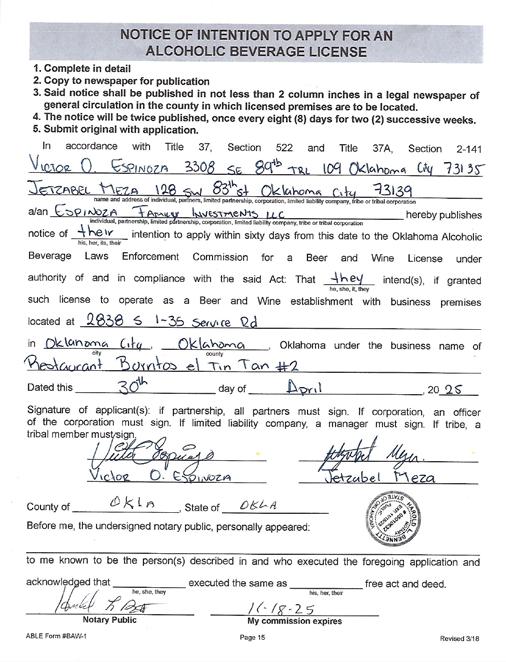 NOTICE OF INTENTION TO APPLY FOR AN
ALCOHOLIC BEVERAGE LICENSE
1. Complete in detail
2. Copy to newspaper for publication
3. Said notice shall be published in not less than 2 column inches in a legal newspaper of
general circulation in the county in which licensed premises are to be located.
4. The notice will be twice published, once every eight (8) days for two (2) successive weeks.
5. Submit original with application.
In accordance with Title 37, Section 522 and Title 37A, Section 2-141
VICTOR O. ESPINOZA 3308 SE 89th TRL 109 Oklahoma City 73135
JETZABEL MEZA 128 SW 83rd St Oklahoma City 73139
name and address of individual, partners, limited partnership, corporation, limited liability company, tribe or tribal corporation
a/an ESPINOZA FAMILY INVESTMENTS LLC hereby publishes
individual, partnership, limited partnership, corporation, limited liability company, tribe or tribal corporation
notice of their intention to apply within sixty days from this date to the Oklahoma Alcoholic
his, her, its, their
Beverage Laws Enforcement Commission for a Beer and Wine License under
authority of and in compliance with the said Act: That they intend(s), if granted
he, she, it, they
such license to operate as a Beer and Wine establishment with business premises
located at 2838 S I-35 Service Rd
in Oklahoma City, Oklahoma, Oklahoma under the business name of
city county
Restaurant Burritos el Tin Tan #2
Dated this 30th day of April, 2025
Signature of applicant(s): if partnership, all partners must sign. If corporation, an officer
of the corporation must sign. If limited liability company, a manager must sign. If tribe, a
tribal member must sign.
VICTOR O. ESPINOZA Jetzabel Meza
County of OKLA, State of OKLA
HAROLD L. BENNETT
Before me, the undersigned notary public, personally appeared:
to me known to be the person(s) described in and who executed the foregoing application and
acknowledged that executed the same as free act and deed.
he, she, they his, her, their
11-18-25
Notary Public My commission expires
ABLE Form #BAW-1 Page 15 Revised 3/18